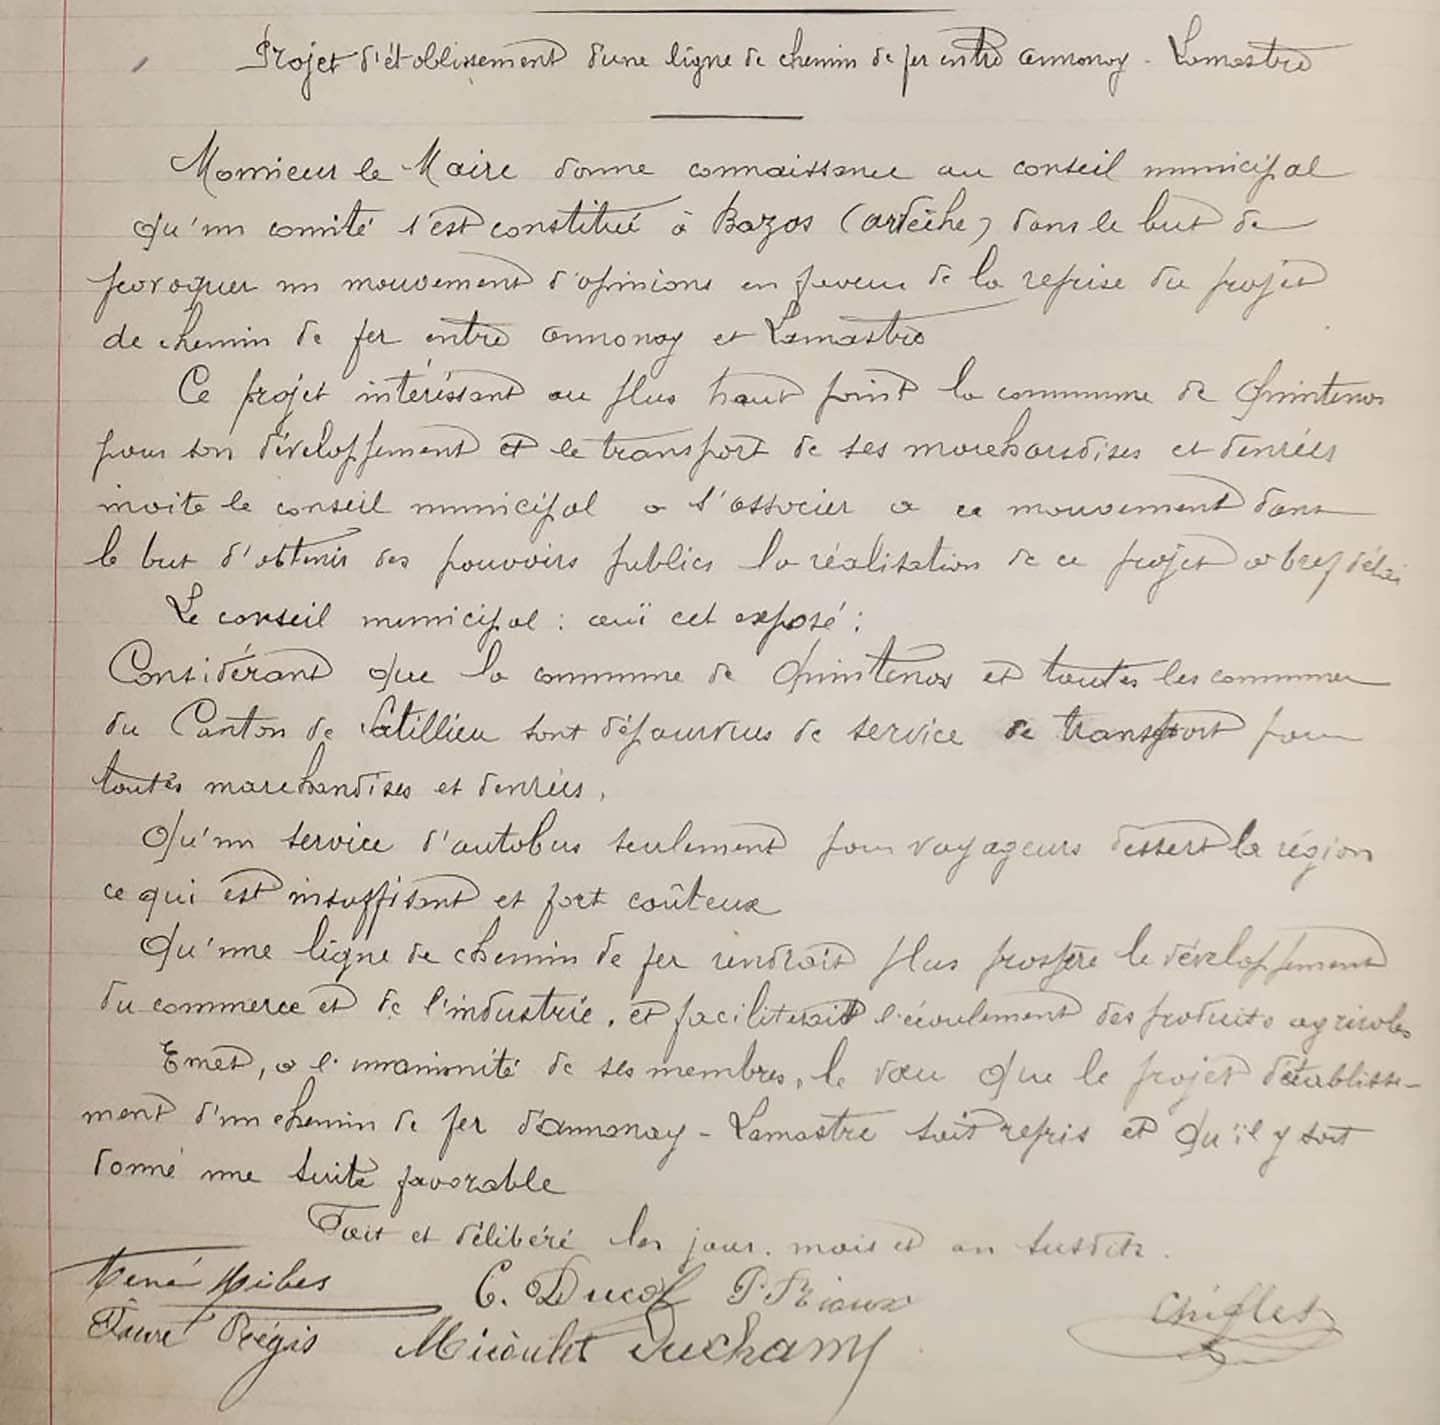 Projet d'établissement d'une ligne de chemin de fer entre Annonay - Lamastre
Monsieur le Maire donne connaissance au conseil municipal
qu'un comité s'est constitué à Bozas (Ardèche) dans le but de
provoquer un mouvement d'opinions en faveur de la reprise du projet
de chemin de fer entre Annonay et Lamastre
Ce projet intéressant au plus haut point la commune de Quintenas
pour son développement et le transport de ses marchandises et denrées
invite le conseil municipal a s'associer a ce mouvement dans
le but d'obtenir des pouvoirs publics la réalisation de ce projet a bref délai
Le conseil municipal : ouï cet exposé :
Considérant que la commune de Quintenas et toutes les communes
du Canton de Satillieu sont dépourvus de service de transport pour
toutes marchandises et denrées,
Qu'un service d'autobus seulement pour voyageurs dessert la région
ce qui est insuffisant et fort coûteux
Qu'une ligne de chemin de fer rendrait plus prospère le développement
du commerce et de l'industrie, et faciliterait l'écoulement des produits agricoles
Emet, a l'unanimité de ses membres, le vœu que le projet d'établisse-
ment d'un chemin de fer d'Annonay - Lamastre soit repris et qu'il y soit
donné une suite favorable
Fait et délibéré les jour, mois et an susdits.
René
C. Ducol P. Rioux
Chiflet
Faure Régis Micoulet Duchamp